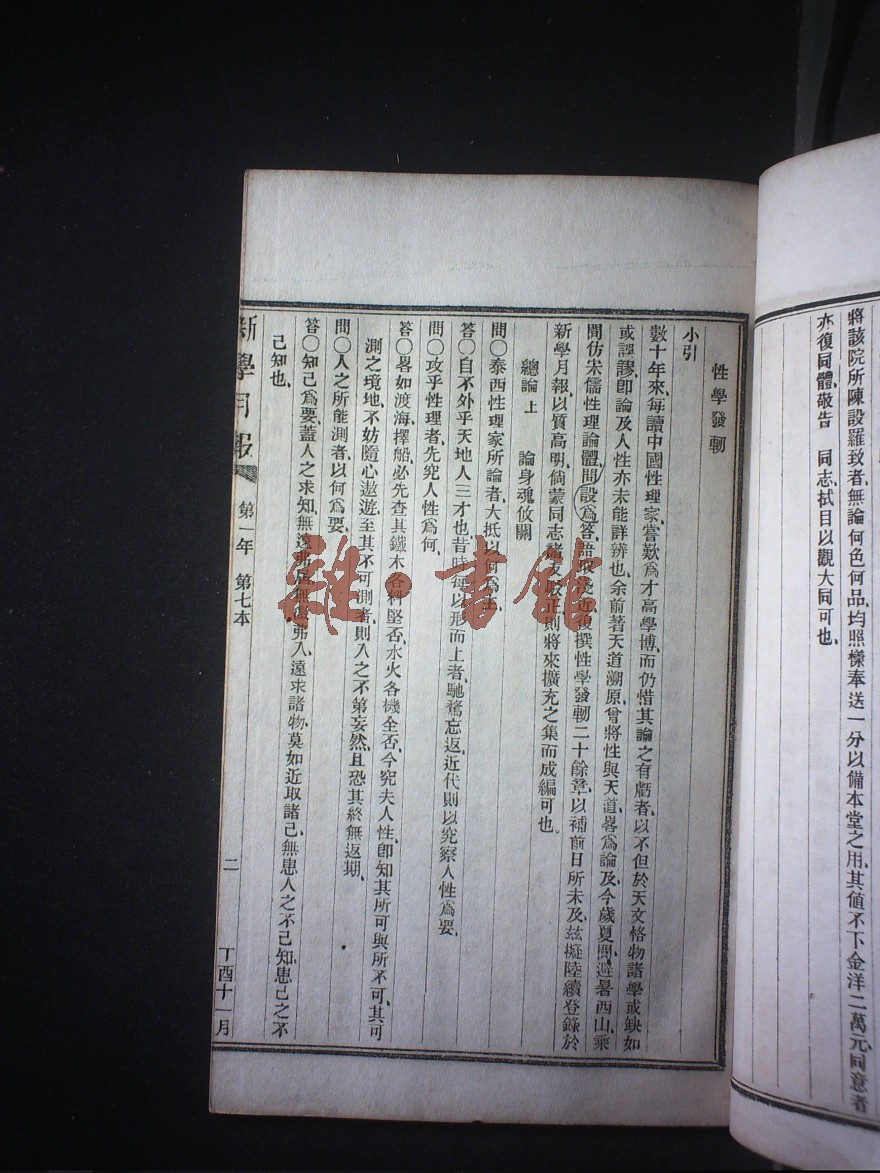 將該院所陳設羅致者、無論何色何品、均照樣奉送一分以備本堂之用、其値不下金洋二萬元、同意者
亦復同體、敬告　同志、拭目以觀大同可也、
性學發軔
小引
數十年來、每讀中國性理家、嘗歎爲才高學博、而仍惜其論之有虧者、以不但於天文格物諸學或缺如
或誤謬、卽論及人性亦未能詳辨也、余前著天道溯原、曾將性與天道、畧爲論及、今歲夏間、避暑西山、乘
間仿宋儒性理論體、間設爲答語取淺近、後撰性學發軔二十餘章、以補前日所未及、玆擬陸續登錄於
新學月報、以質高明、倘蒙同志諸友政正、則將來擴充之、集而成編可也。
總論上　　論身魂攸關
問〇泰西性理家所論者、大抵以何爲主、
答〇自不外乎天地人三才也、昔時每以形而上者、馳騖忘返、近代則以究察人性爲要、
問〇攻乎性理者、先究人性爲何、
答〇畧如渡海、擇船必先查其鐵木各料堅否、水火各機全否、今究夫人性、卽知其所可與所不可、其可
測之境地、不妨隨心遨遊、至其不可測者、則入之不第妄然、且恐其終無返期、
問〇人之所能測者、以何爲要、
答〇知己爲要、蓋人之求知、無遠弗屆、無微弗入、遠求諸物、莫如近取諸己、無患人之不己知、患己之不
己知也、
新學月報　第一年　第七本　二　丁酉十一月
雜·書館